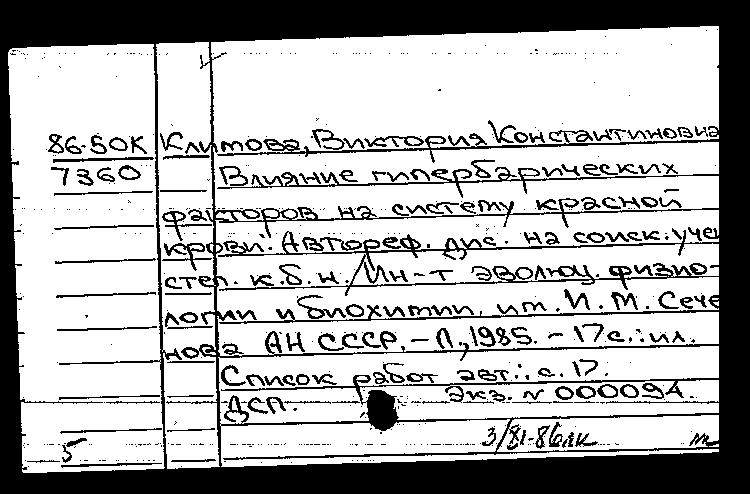 86-50К Климова, Виктория Константиновна
7360 Влияние гипербарических
факторов на систему красной
крови: Автореф. дис. на соиск. учен
степ. к.б.н. / Ин-т эволюц. физио-
логии и биохимии им. И. М. Сече
нова АН СССР. - Л., 1985. - 17 с.: ил.
Список работ авт.: с. 17.
ДСП. Экз. N 000094.
3/81-86лк
5